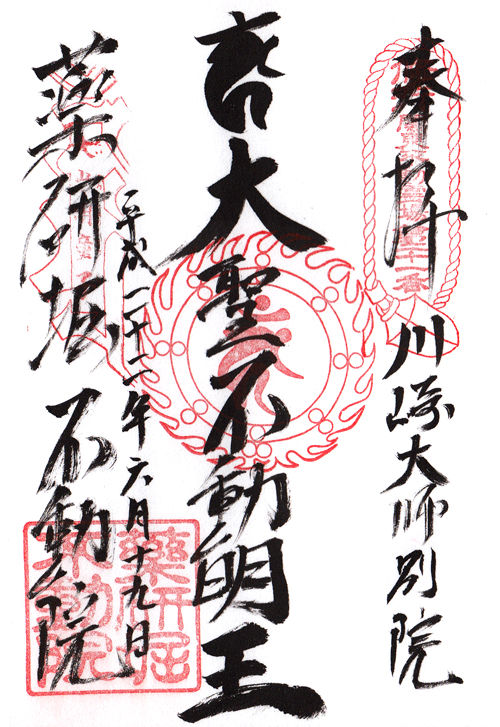 奉拝
川崎大師別院
大聖不動明王
平成二十二年六月十九日
薬研堀
不動院
薬研堀
不動院